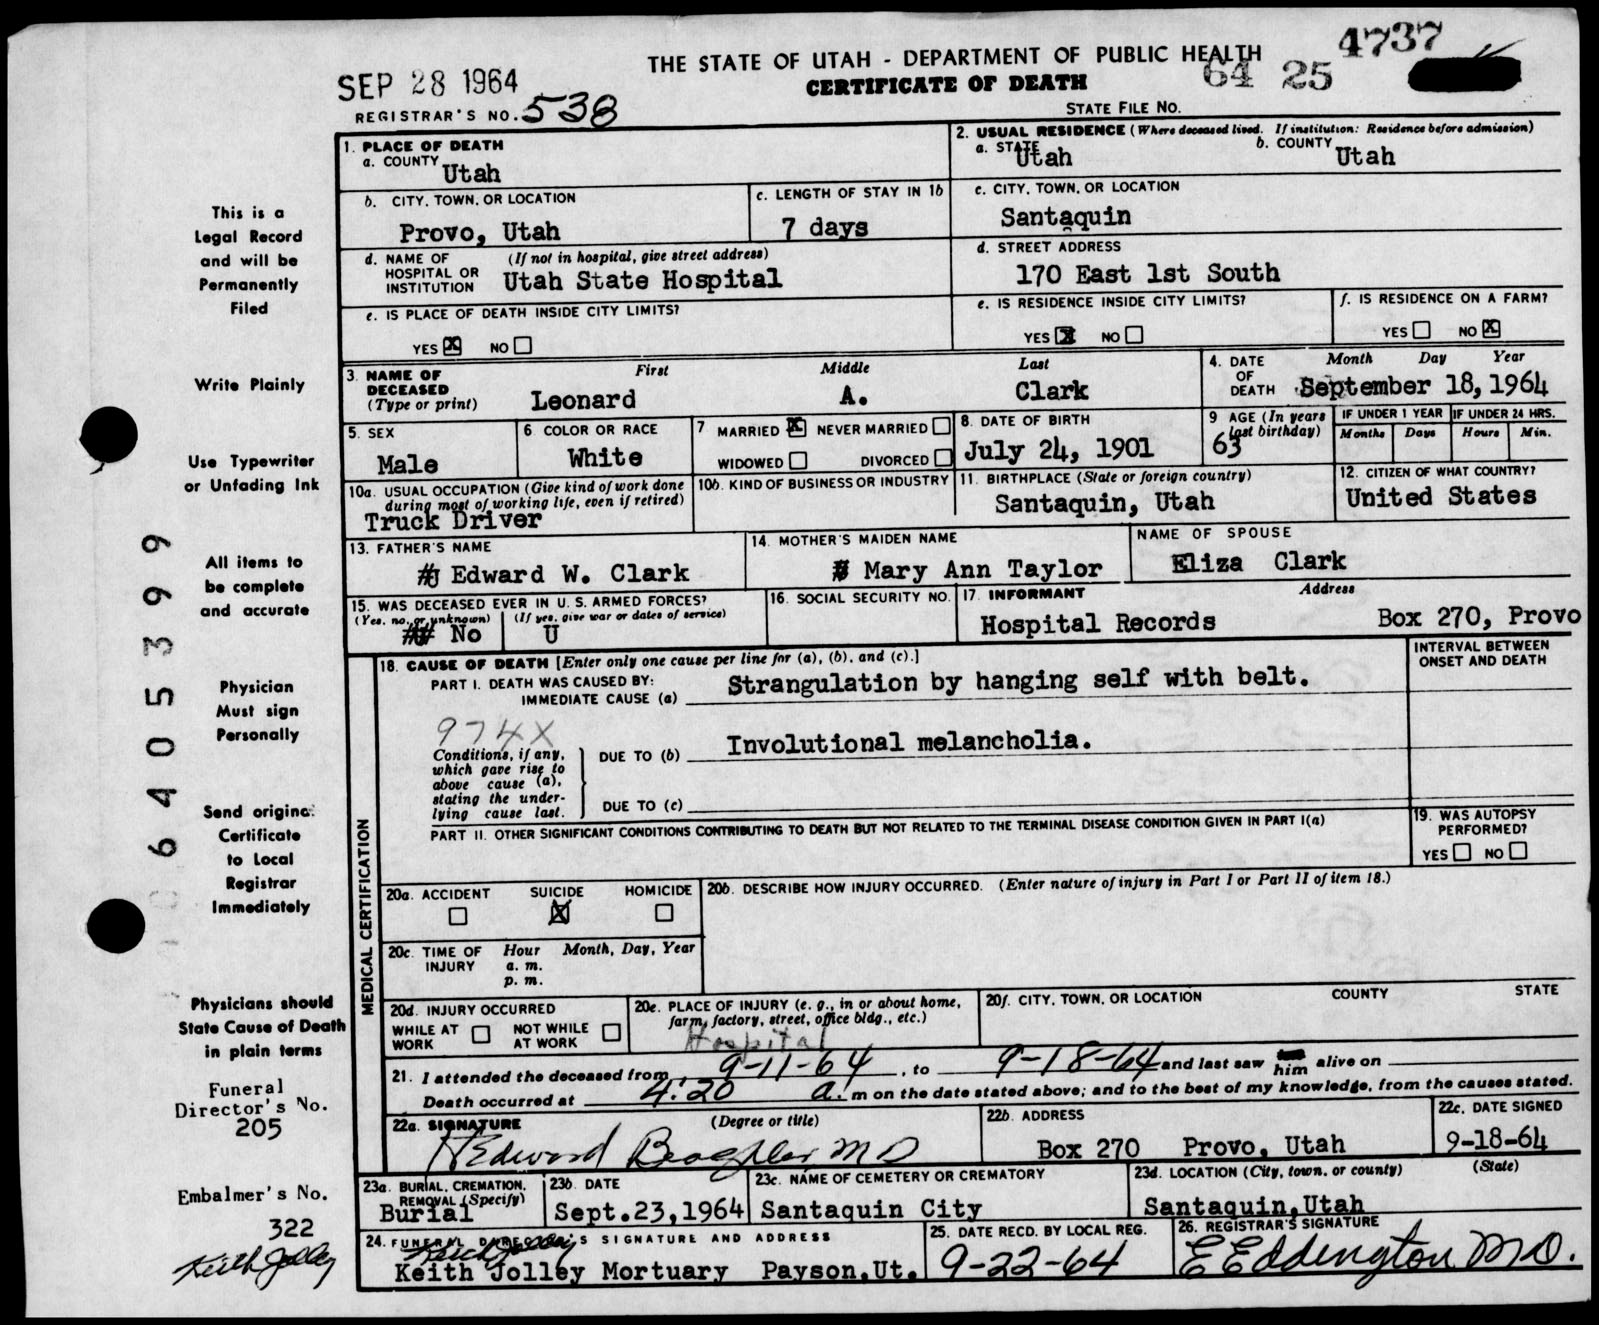 4737
THE STATE OF UTAH - DEPARTMENT OF PUBLIC HEALTH
64 25
SEP 28 1964
CERTIFICATE OF DEATH
REGISTRAR'S NO. 538
STATE FILE NO.
1. PLACE OF DEATH
a. COUNTY
Utah
2. USUAL RESIDENCE (Where deceased lived. If institution: Residence before admission)
a. STATE
Utah
b. COUNTY
Utah
b. CITY, TOWN, OR LOCATION
Provo, Utah
c. LENGTH OF STAY IN 1b
7 days
c. CITY, TOWN, OR LOCATION
Santaquin
d. NAME OF HOSPITAL OR INSTITUTION
(If not in hospital, give street address)
Utah State Hospital
d. STREET ADDRESS
170 East 1st South
e. IS PLACE OF DEATH INSIDE CITY LIMITS?
YES X NO
e. IS RESIDENCE INSIDE CITY LIMITS?
YES X NO
f. IS RESIDENCE ON A FARM?
YES NO X
3. NAME OF DECEASED
(Type or print)
First Middle Last
Leonard A. Clark
4. DATE OF DEATH
Month Day Year
September 18, 1964
5. SEX
Male
6 COLOR OR RACE
White
7 MARRIED X NEVER MARRIED
WIDOWED DIVORCED
8. DATE OF BIRTH
July 24, 1901
9 AGE (In years last birthday)
63
IF UNDER 1 YEAR
Months Days
IF UNDER 24 HRS.
Hours Min.
10a. USUAL OCCUPATION (Give kind of work done
during most of working life, even if retired)
Truck Driver
10b. KIND OF BUSINESS OR INDUSTRY
11. BIRTHPLACE (State or foreign country)
Santaquin, Utah
12. CITIZEN OF WHAT COUNTRY?
United States
13. FATHER'S NAME
Edward W. Clark
14. MOTHER'S MAIDEN NAME
Mary Ann Taylor
NAME OF SPOUSE
Eliza Clark
15. WAS DECEASED EVER IN U. S. ARMED FORCES?
(Yes, no, or unknown) (If yes, give war or dates of service)
No U
16. SOCIAL SECURITY NO.
17. INFORMANT Address
Hospital Records Box 270, Provo
MEDICAL CERTIFICATION
18. CAUSE OF DEATH [Enter only one cause per line for (a), (b), and (c).]
INTERVAL BETWEEN
ONSET AND DEATH
PART I. DEATH WAS CAUSED BY:
IMMEDIATE CAUSE (a) Strangulation by hanging self with belt.
974X
Conditions, if any,
which gave rise to
above cause (a),
stating the under-
lying cause last.
DUE TO (b) Involutional melancholia.
DUE TO (c)
PART II. OTHER SIGNIFICANT CONDITIONS CONTRIBUTING TO DEATH BUT NOT RELATED TO THE TERMINAL DISEASE CONDITION GIVEN IN PART I(a)
19. WAS AUTOPSY
PERFORMED?
YES NO
20a. ACCIDENT SUICIDE HOMICIDE
X
20b. DESCRIBE HOW INJURY OCCURRED. (Enter nature of injury in Part I or Part II of item 18.)
20c. TIME OF INJURY
Hour Month, Day, Year
a. m.
p. m.
20d. INJURY OCCURRED
WHILE AT WORK
NOT WHILE AT WORK
20e. PLACE OF INJURY (e. g., in or about home,
farm, factory, street, office bldg., etc.)
Hospital
20f. CITY, TOWN, OR LOCATION COUNTY STATE
21. I attended the deceased from 9-11-64, to 9-18-64 and last saw him alive on
Death occurred at 4:20 a. m on the date stated above; and to the best of my knowledge, from the causes stated.
22a. SIGNATURE (Degree or title)
Edward MD
22b. ADDRESS
Box 270 Provo, Utah
22c. DATE SIGNED
9-18-64
23a. BURIAL, CREMATION,
REMOVAL (Specify)
Burial
23b. DATE
Sept.23,1964
23c. NAME OF CEMETERY OR CREMATORY
Santaquin City
23d. LOCATION (City, town, or county) (State)
Santaquin,Utah
24. FUNERAL DIRECTOR'S SIGNATURE AND ADDRESS
Keith Jolley
Keith Jolley Mortuary Payson,Ut.
25. DATE RECD. BY LOCAL REG.
9-22-64
26. REGISTRAR'S SIGNATURE
E Eddington MD.
This is a
Legal Record
and will be
Permanently
Filed
Write Plainly
Use Typewriter
or Unfading Ink
All items to
be complete
and accurate
Physician
Must sign
Personally
Send original
Certificate
to Local
Registrar
Immediately
Physicians should
State Cause of Death
in plain terms
Funeral
Director's No.
205
Embalmer's No.
322
Keith Jolley
6405399